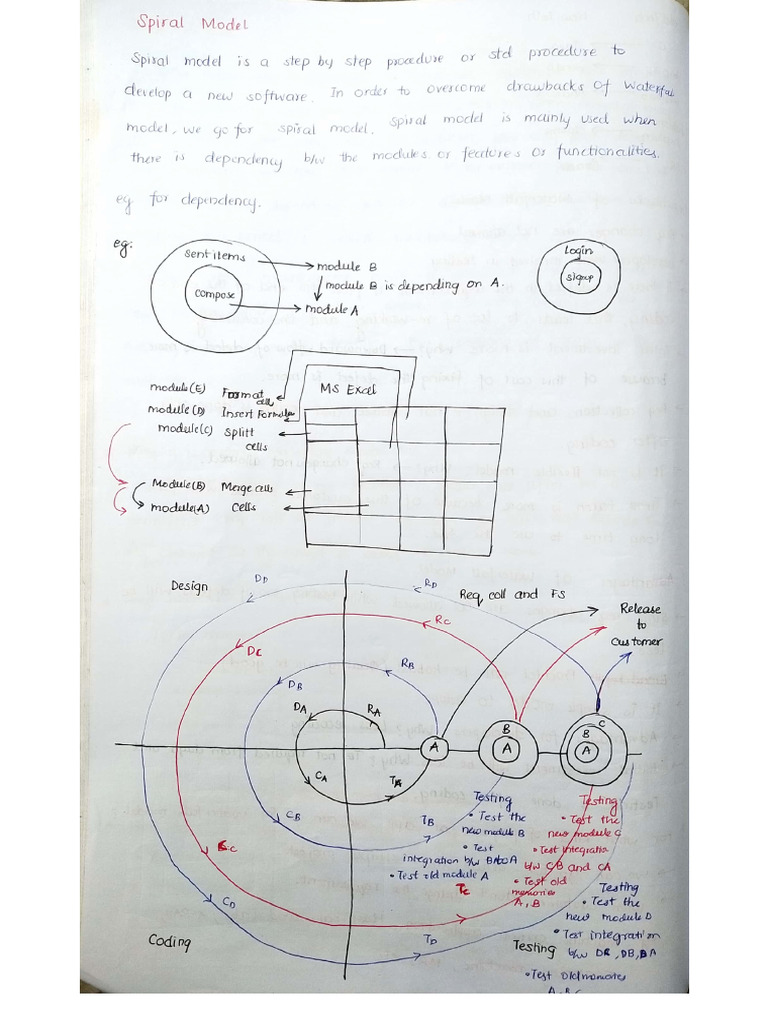 Spiral Model
Spiral model is a step by step procedure or std procedure to
develop a new software. In order to overcome drawbacks of waterfall
model, we go for spiral model. Spiral model is mainly used when
there is dependency b/w the modules or features or functionalities.
eg for dependency.
eg:
sent items
compose
module B
module B is depending on A.
module A
Login
signup
MS Excel
module(E) Format cells
module(D) Insert Formulas
module(C) Splitt
cells
Module(B) Merge cells
module(A) cells
Design
DD
RD
Req, coll and FS
Release
to
Customer
RC
DC
RB
DB
DA
RA
A
B
A
C
B
A
CA
TA
CB
TB
CC
TC
CD
TD
Testing
• Test the
new module B
• Test
integration b/w B to A
• Test old module A
Testing
• Test the
new module C
• Test integratio
b/w CB and CA
• Test old
A, B
Testing
• Test the
new module D
• Test integration
b/w DC, DB, DA
• Test old
A, B, C
Coding
Testing